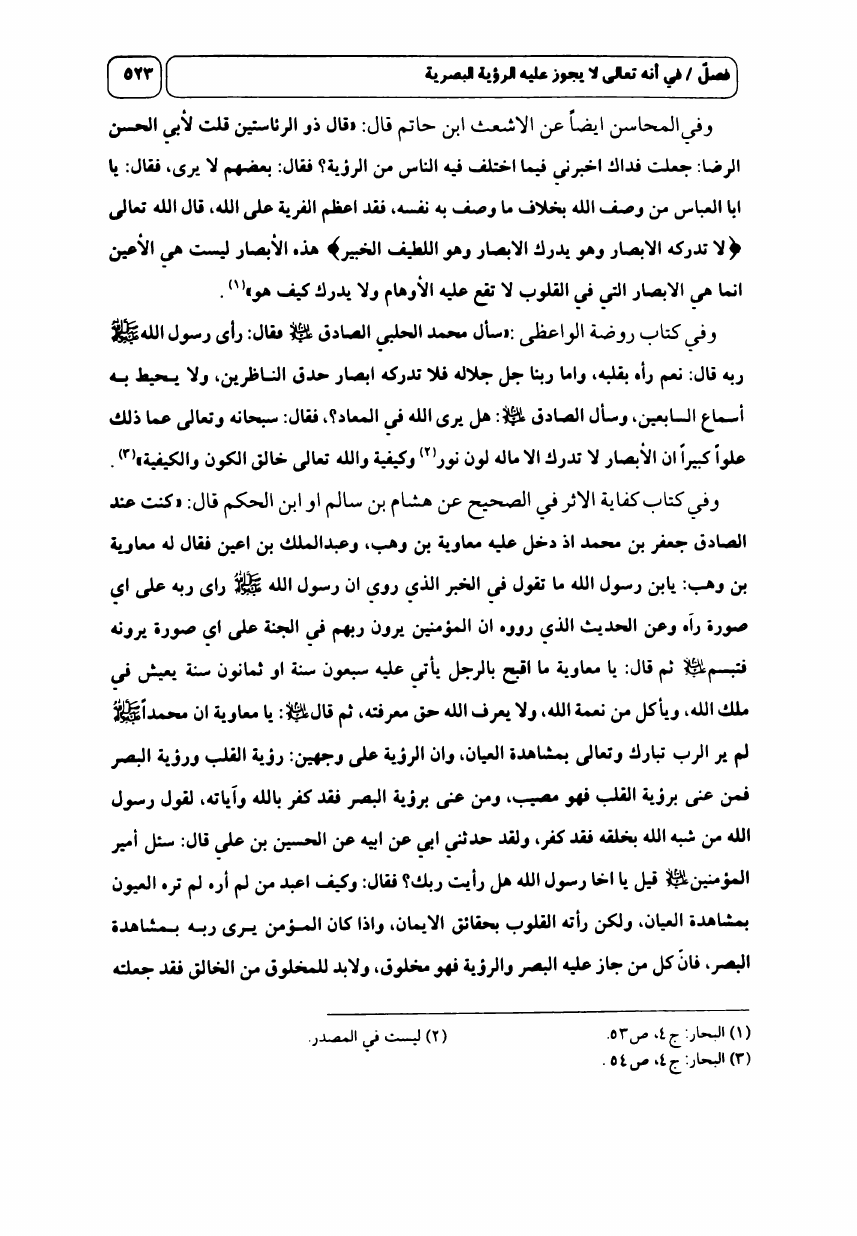 فصلٌ / في أنه تعالى لا يجوز عليه الرؤية البصرية ٥٢٣
وفي المحاسن ايضاً عن الاشعث ابن حاتم قال: «قال ذو الرئاستين قلت لأبي الحسن
الرضا: جعلت فداك اخبرني فيما اختلف فيه الناس من الرؤية؟ فقال: بعضهم لا يرى، فقال: يا
ابا العباس من وصف الله بخلاف ما وصف به نفسه، فقد اعظم الفرية على الله، قال الله تعالى
﴿لا تدركه الابصار وهو يدرك الابصار وهو اللطيف الخبير﴾ هذه الأبصار ليست هي الأعين
انما هي الابصار التي في القلوب لا تقع عليه الأوهام ولا يدرك كيف هو»(١).
وفي كتاب روضة الواعظي :«سأل محمد الحلبي الصادق عليه السلام فقال: رأى رسول الله ﷺ
ربه قال: نعم رأه بقلبه، واما ربنا جل جلاله فلا تدركه ابصار حدق الناظرين، ولا يحيط به
أسماع السابعين، وسأل الصادق عليه السلام: هل يرى الله في المعاد؟، فقال: سبحانه وتعالى عما ذلك
علواً كبيراً ان الأبصار لا تدرك الا ماله لون نور(٢) وكيفية والله تعالى خالق الكون والكيفية»(٣).
وفي كتاب كفاية الاثر في الصحيح عن هشام بن سالم او ابن الحكم قال: «كنت عند
الصادق جعفر بن محمد اذ دخل عليه معاوية بن وهب، وعبدالملك بن اعين فقال له معاوية
بن وهب: يابن رسول الله ما تقول في الخبر الذي روي ان رسول الله ﷺ راى ربه على اي
صورة رآه وعن الحديث الذي رووه ان المؤمنين يرون ربهم في الجنة على اي صورة يرونه
فتبسم عليه السلام ثم قال: يا معاوية ما اقبح بالرجل يأتي عليه سبعون سنة او ثمانون سنة يعيش في
ملك الله، ويأكل من نعمة الله، ولا يعرف الله حق معرفته، ثم قال عليه السلام: يا معاوية ان محمداً ﷺ
لم ير الرب تبارك وتعالى بمشاهدة العيان، وان الرؤية على وجهين: رؤية القلب ورؤية البصر
فمن عنى برؤية القلب فهو مصيب، ومن عنى برؤية البصر فقد كفر بالله وآياته، لقول رسول
الله من شبه الله بخلقه فقد كفر، ولقد حدثني ابي عن ابيه عن الحسين بن علي قال: سئل أمير
المؤمنين عليه السلام قيل يا اخا رسول الله هل رأيت ربك؟ فقال: وكيف اعبد من لم أره لم تره العيون
بمشاهدة العيان، ولكن رأته القلوب بحقائق الايمان، واذا كان المؤمن يرى ربه بمشاهدة
البصر، فانّ كل من جاز عليه البصر والرؤية فهو مخلوق، ولابد للمخلوق من الخالق فقد جعلته
(١) البحار: ج٤، ص٥٣. (٢) ليست في المصدر.
(٣) البحار: ج٤، ص٥٤ .